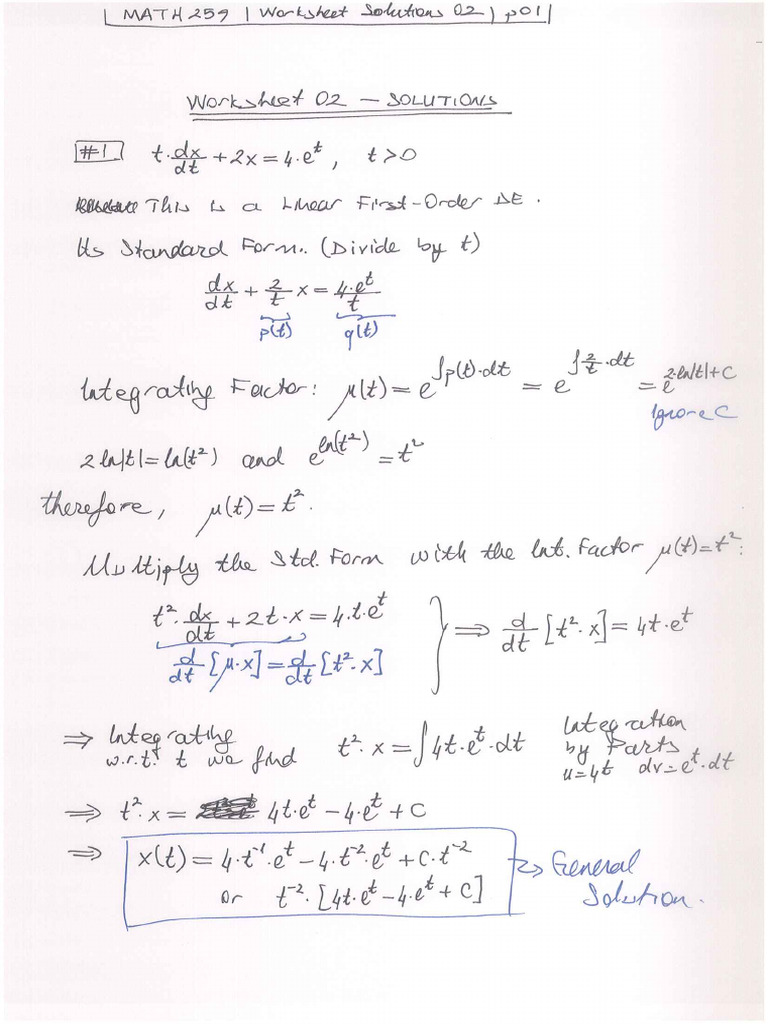 MATH 259 | Worksheet Solutions 02 | p01 |
Worksheet 02 — SOLUTIONS
#1 t·dx/dt + 2x = 4·e^t, t>0
This is a Linear First-Order DE.
Its Standard Form. (Divide by t)
dx/dt + 2/t x = 4·e^t/t
p(t) q(t)
Integrating Factor: μ(t) = e^∫p(t)·dt = e^∫2/t·dt = e^2·ln|t|+C
Ignore C
2 ln|t| = ln(t²) and e^ln(t²) = t²
therefore, μ(t) = t².
Multiply the Std. Form with the Int. Factor μ(t) = t²:
t²·dx/dt + 2t·x = 4·t·e^t } ⟹ d/dt [t²·x] = 4t·e^t
d/dt [μ·x] = d/dt [t²·x]
⟹ Integrating w.r.t. t we find t²·x = ∫4t·e^t·dt Integration by Parts u=4t dv=e^t·dt
⟹ t²·x = 4t·e^t − 4·e^t + C
⟹ x(t) = 4·t^-1·e^t − 4·t^-2·e^t + C·t^-2 → General Solution.
or t^-2·[4t·e^t − 4·e^t + C]